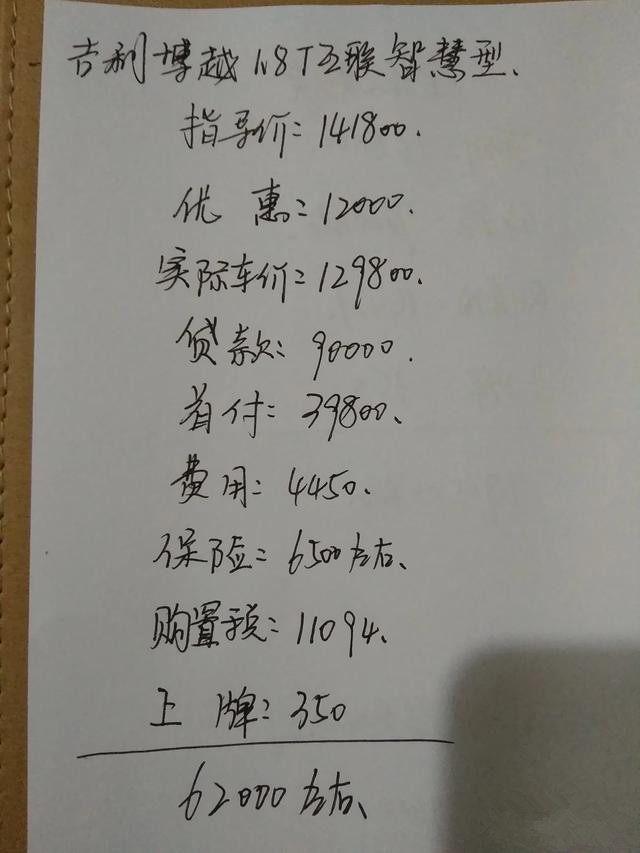 吉利博越1.8T互联智慧型、
指导价:141800.
优惠:12000.
实际车价:129800.
贷款:90000.
首付:39800、
费用:4450.
保险:6500左右、
购置税:11094.
上牌:350
62000左右、